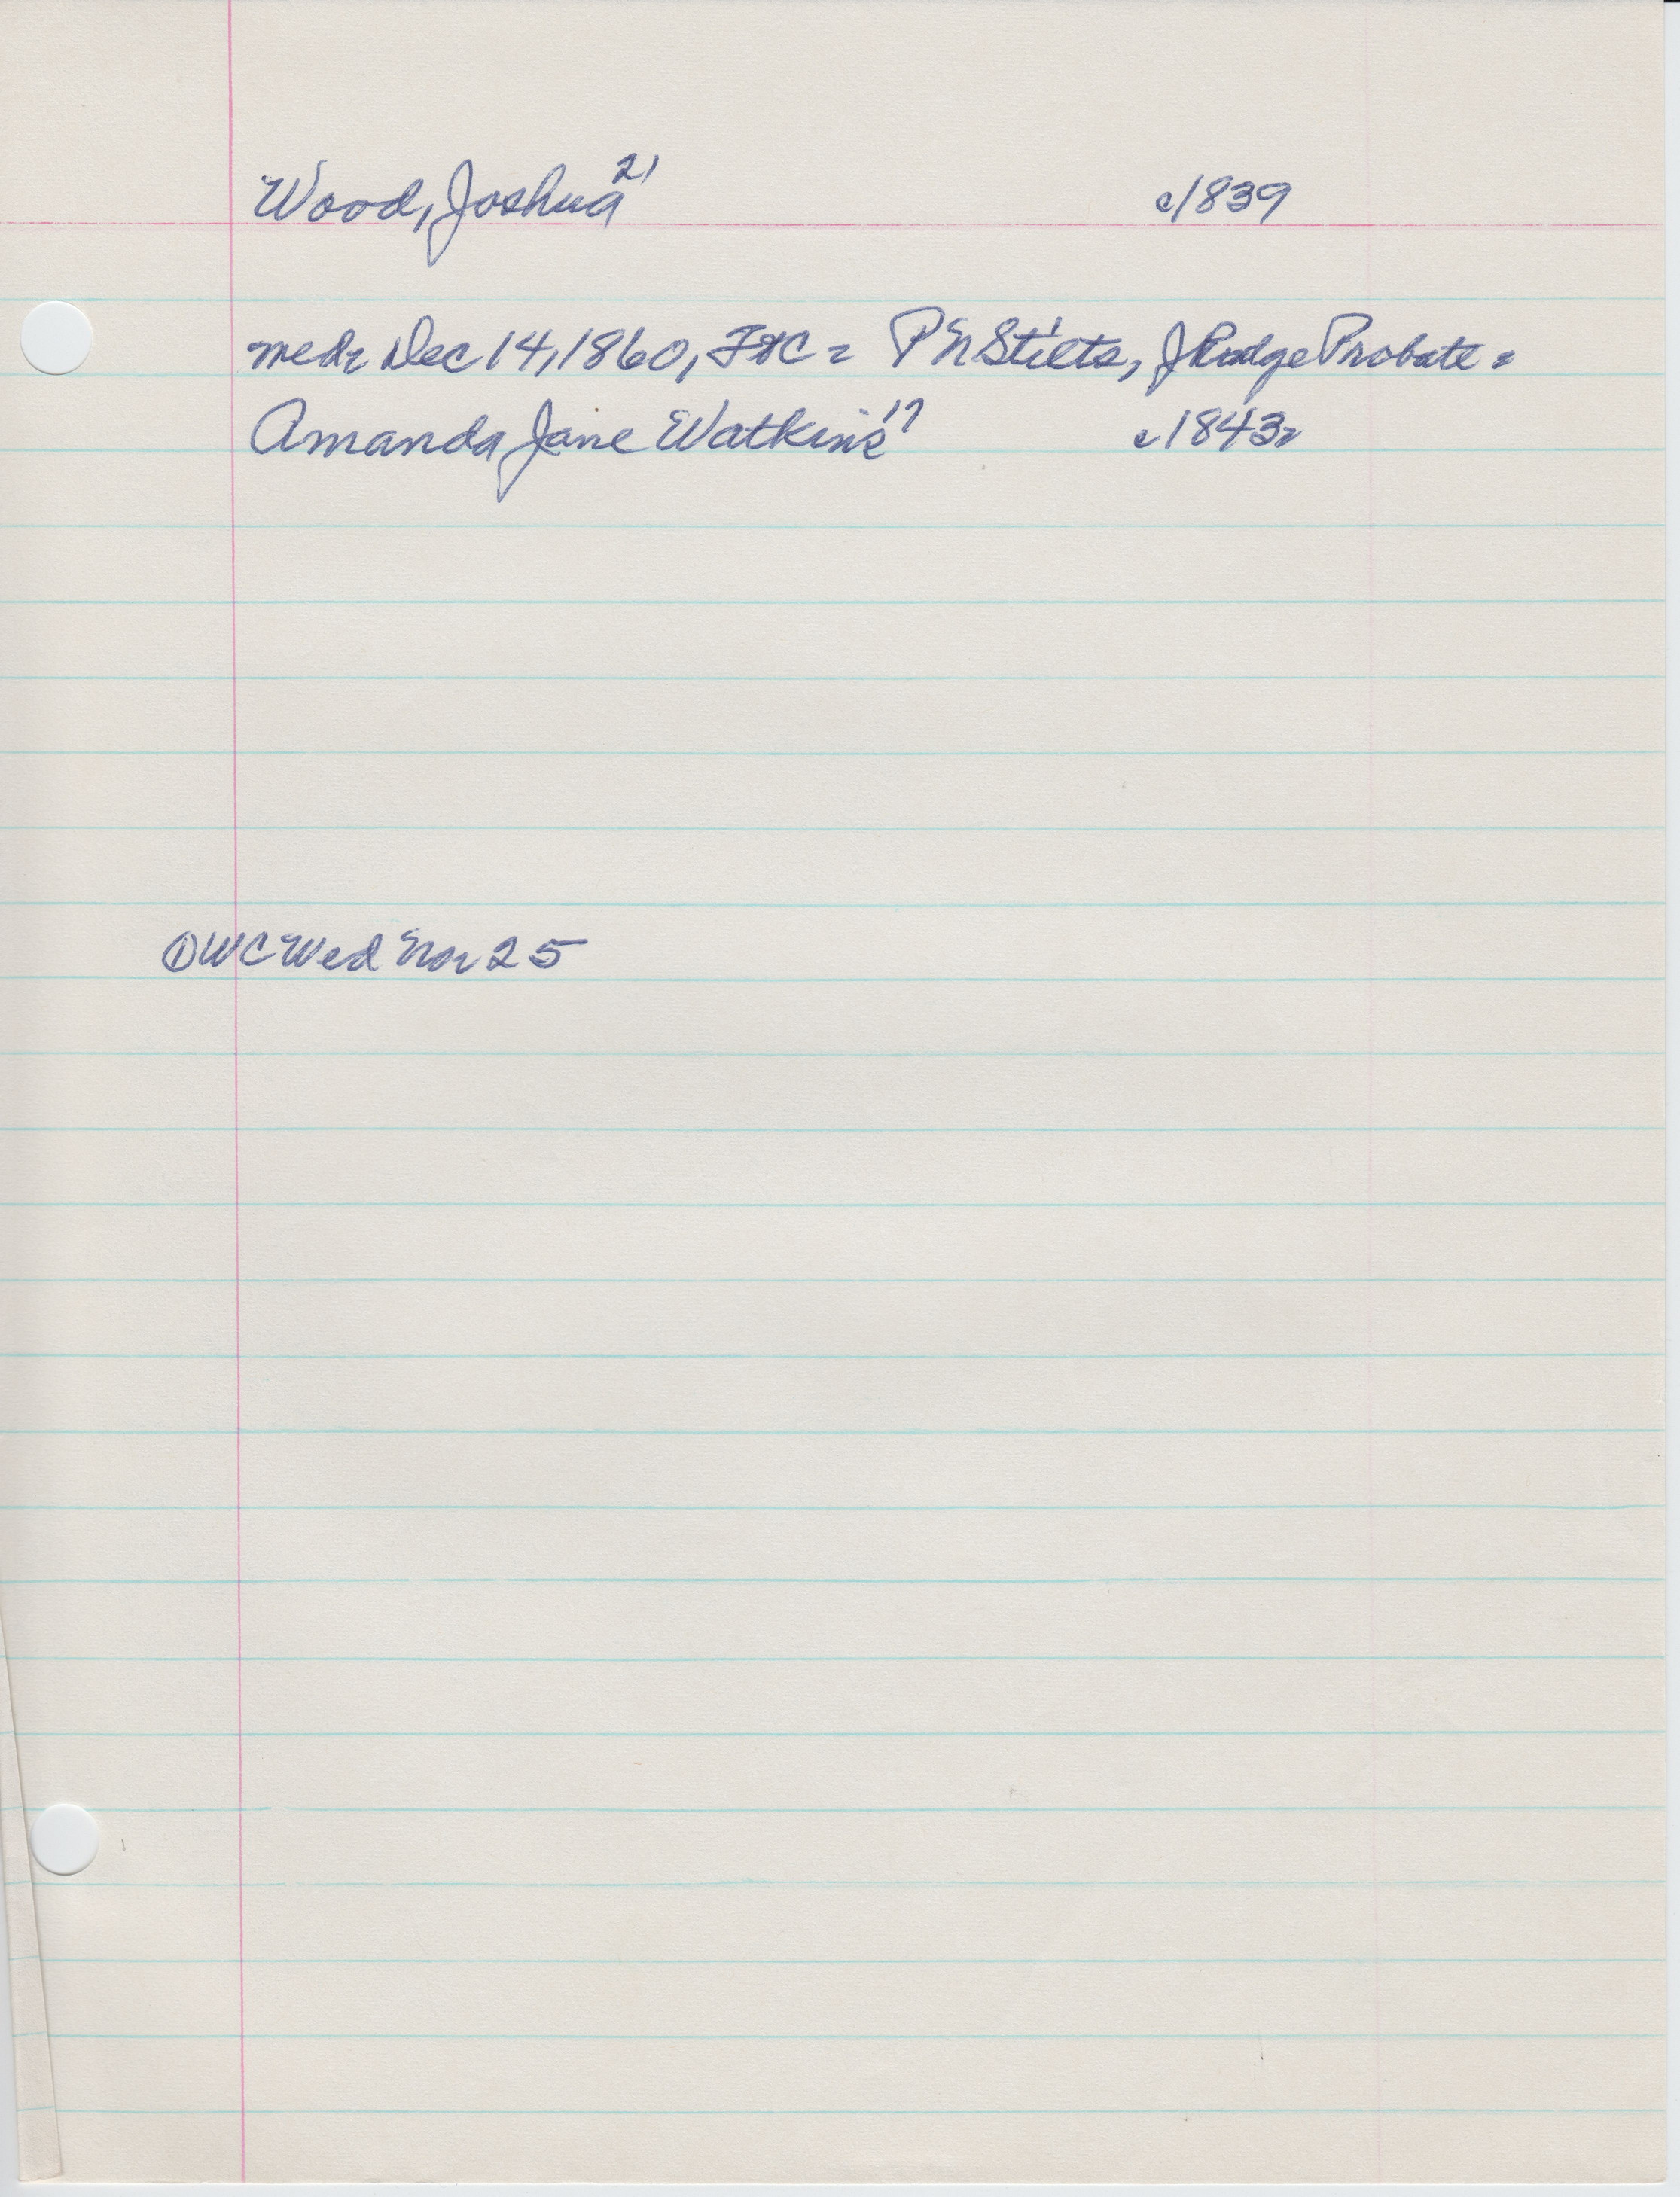 Wood, Joshua 21 c1839
Dec 14, 1860, P N Stilts, Judge Probate =
Amanda Jane Watkins 17 c1843
① WC Wed Nov 25